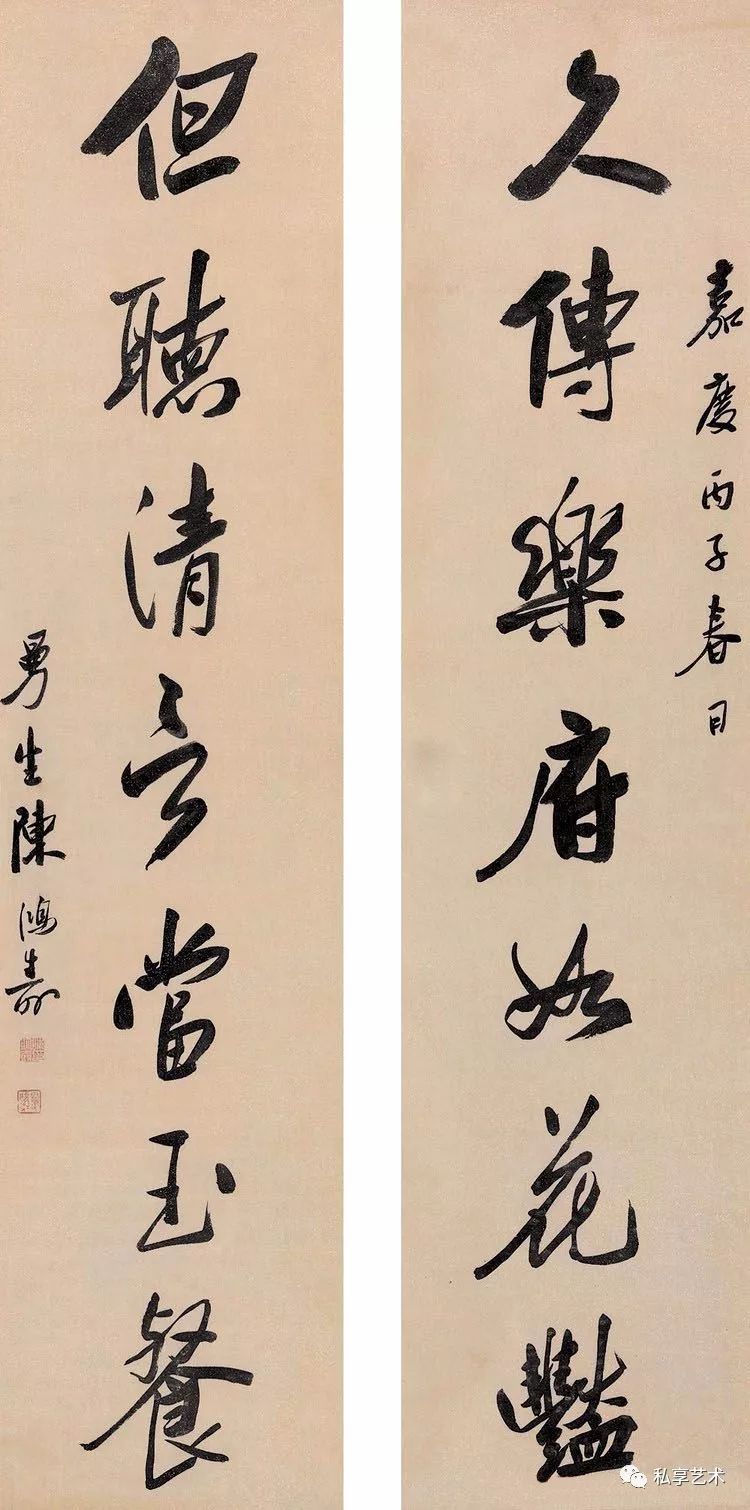 嘉慶丙子春日
久傳樂府如花豔
但聽清言當玉餐
曼生陳鴻壽
私享艺术